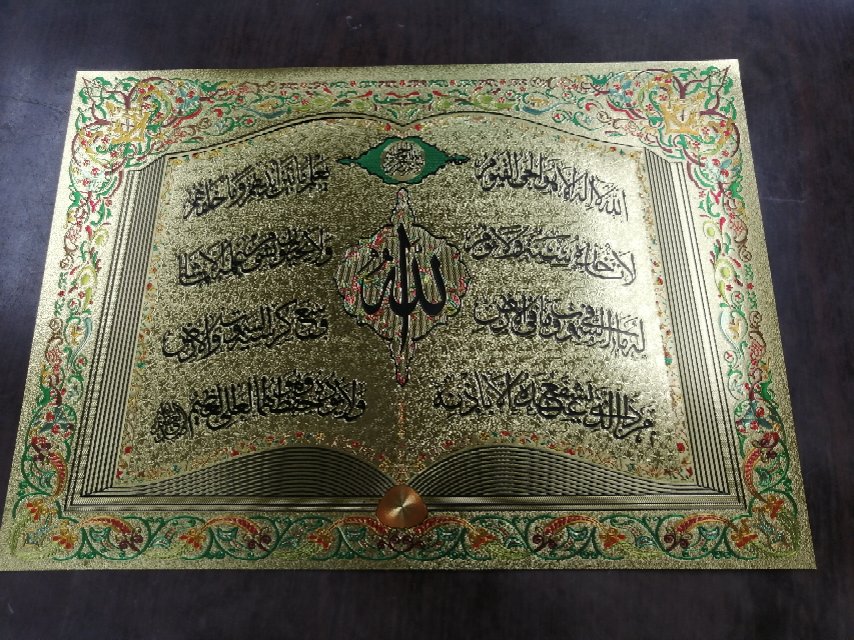 الله لا إله إلا هو الحي القيوم
لا تأخذه سنة ولا نوم
له ما في السموات وما في الأرض
من ذا الذي يشفع عنده إلا بإذنه
الله
يعلم ما بين أيديهم وما خلفهم
ولا يحيطون بشيء من علمه إلا بما شاء
وسع كرسيه السموات والأرض
ولا يؤده حفظهما وهو العلي العظيم